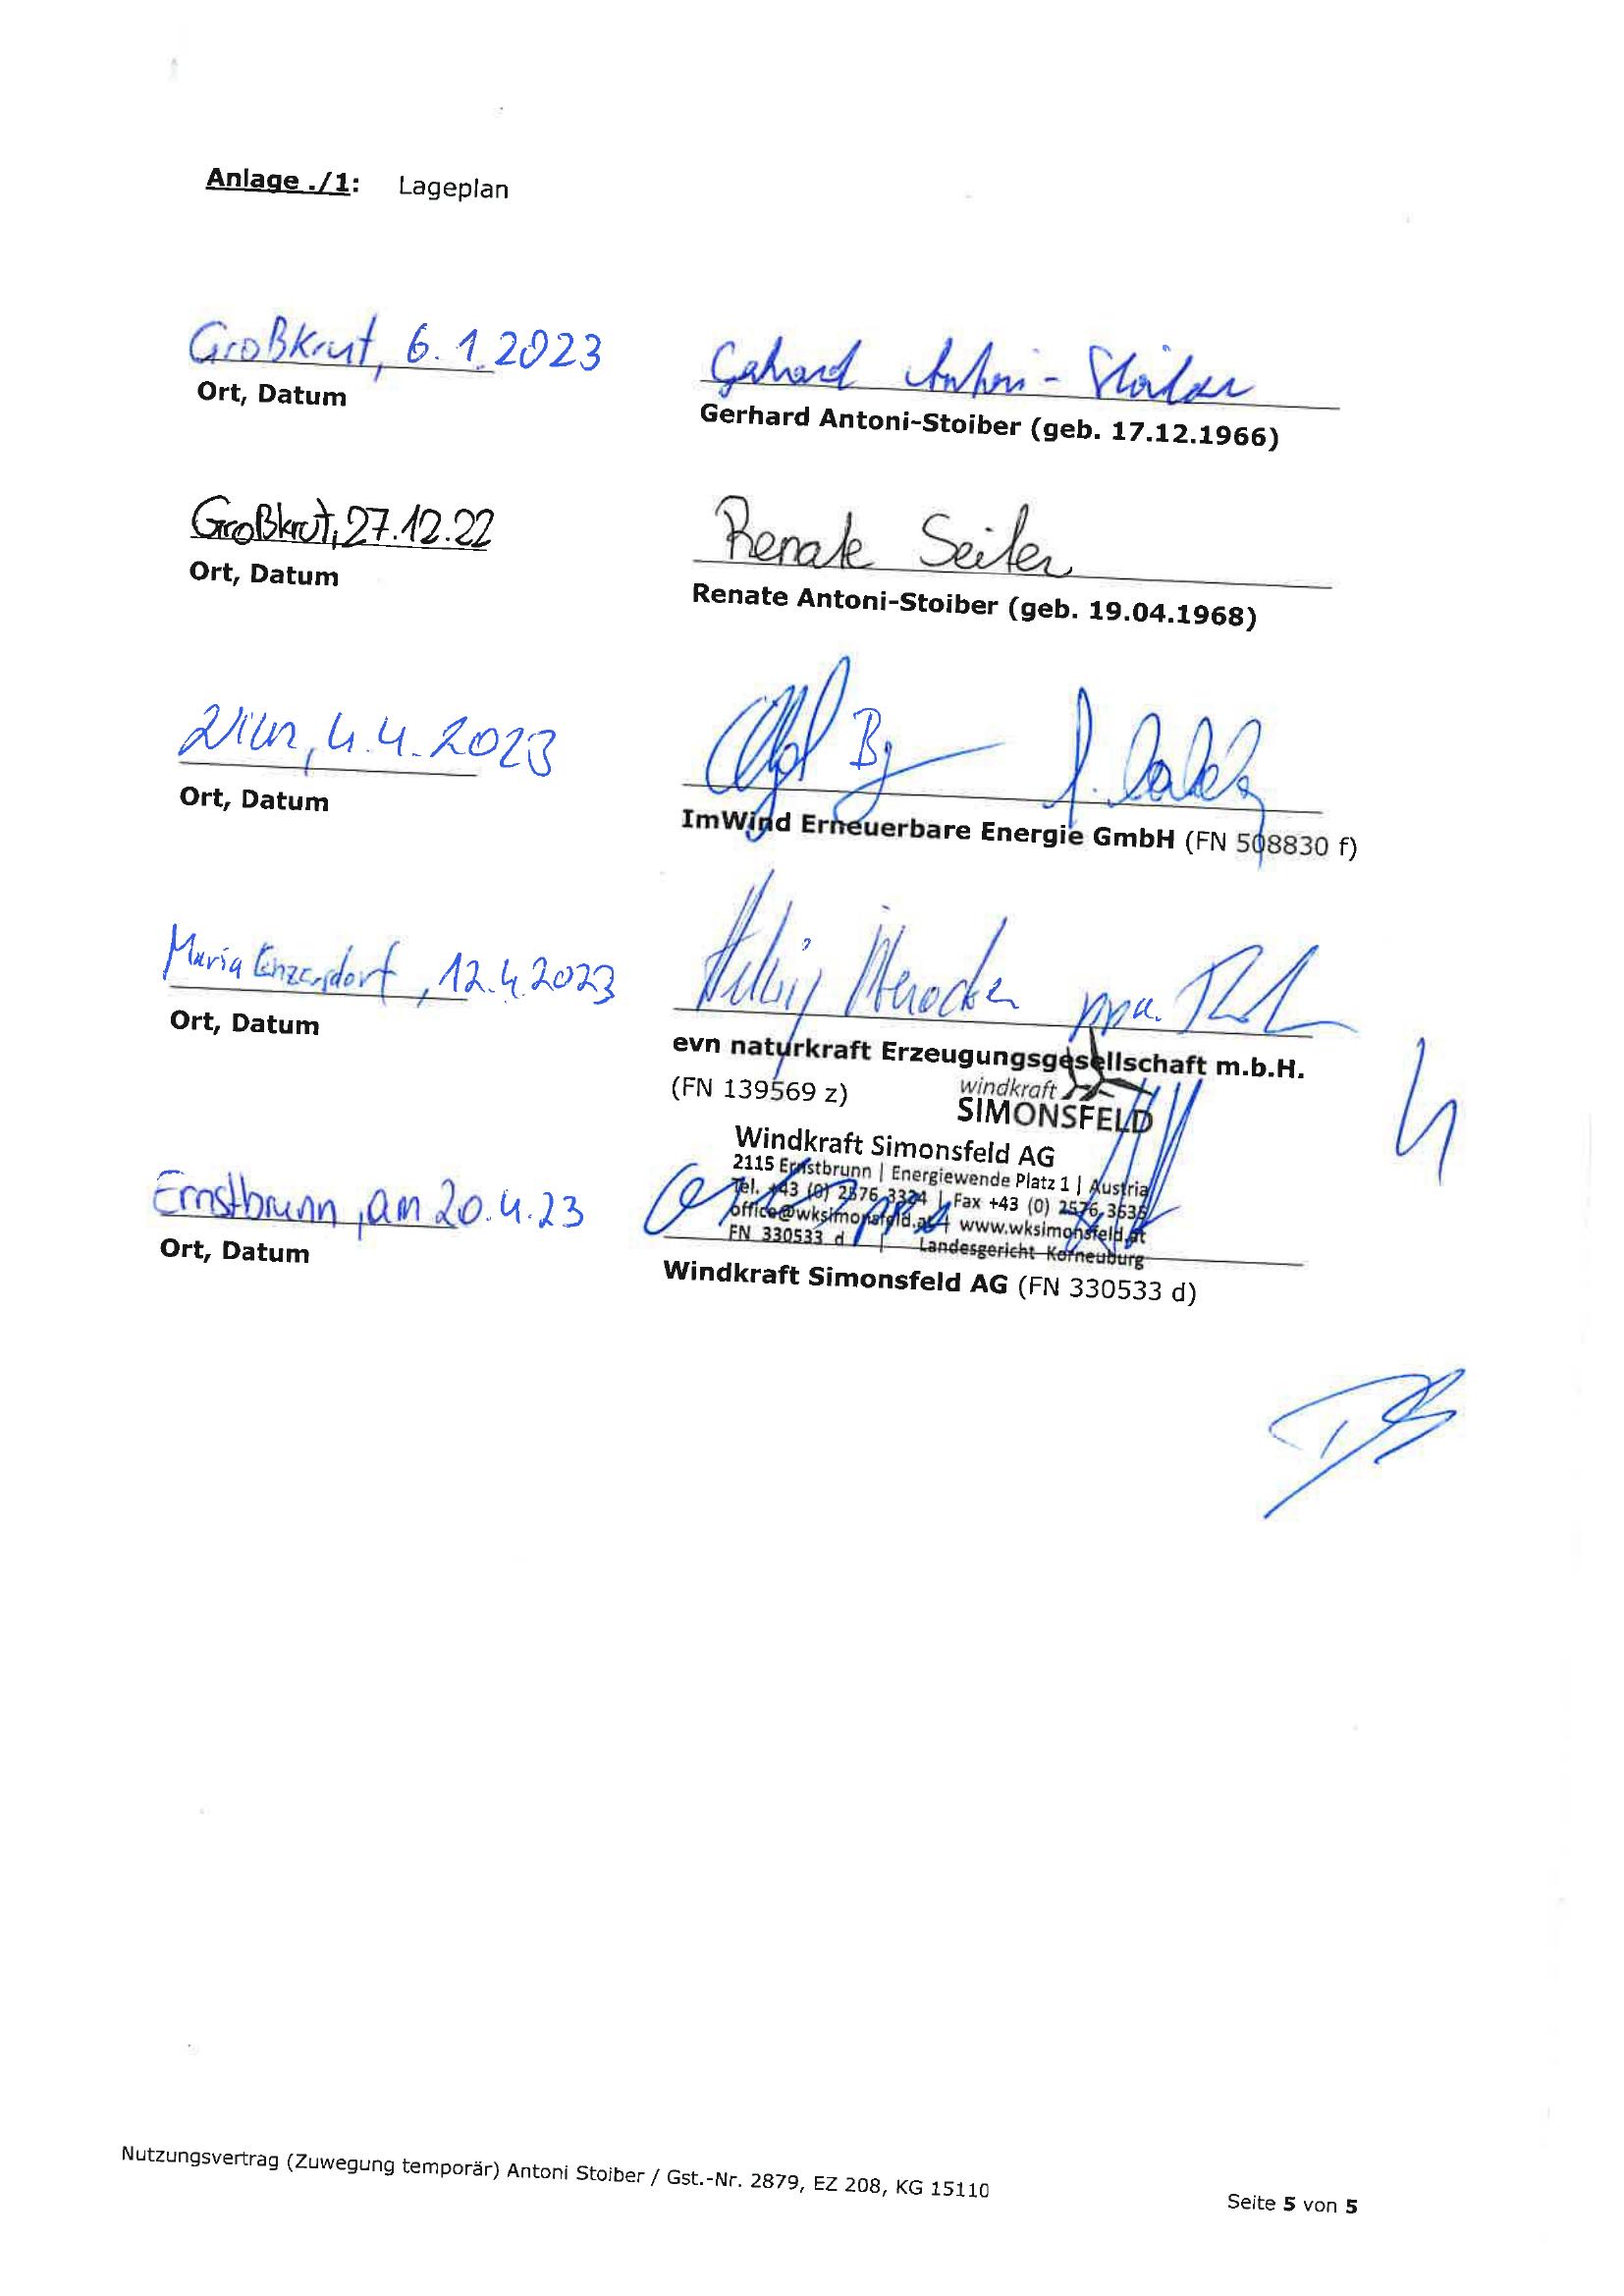 Anlage ./1: Lageplan
Großkrut, 6.1.2023
Gerhard Antoni-Stoiber
Ort, Datum
Gerhard Antoni-Stoiber (geb. 17.12.1966)
Großkrut, 27.12.22
Renate Seiter
Ort, Datum
Renate Antoni-Stoiber (geb. 19.04.1968)
Wien, 4.4.2023
Ort, Datum
ImWind Erneuerbare Energie GmbH (FN 508830 f)
Maria Enzersdorf, 12.4.2023
ppa.
Ort, Datum
evn naturkraft Erzeugungsgesellschaft m.b.H.
(FN 139569 z)
windkraft
SIMONSFELD
Windkraft Simonsfeld AG
2115 Ernstbrunn | Energiewende Platz 1 | Austria
Tel. +43 (0) 2576 3324 | Fax +43 (0) 2576, 3635
office@wksimonsfeld.at | www.wksimonsfeld.at
FN 330533 d | Landesgericht Korneuburg
Ernstbrunn, am 20.4.23
Ort, Datum
Windkraft Simonsfeld AG (FN 330533 d)
Nutzungsvertrag (Zuwegung temporär) Antoni Stoiber / Gst.-Nr. 2879, EZ 208, KG 15110
Seite 5 von 5